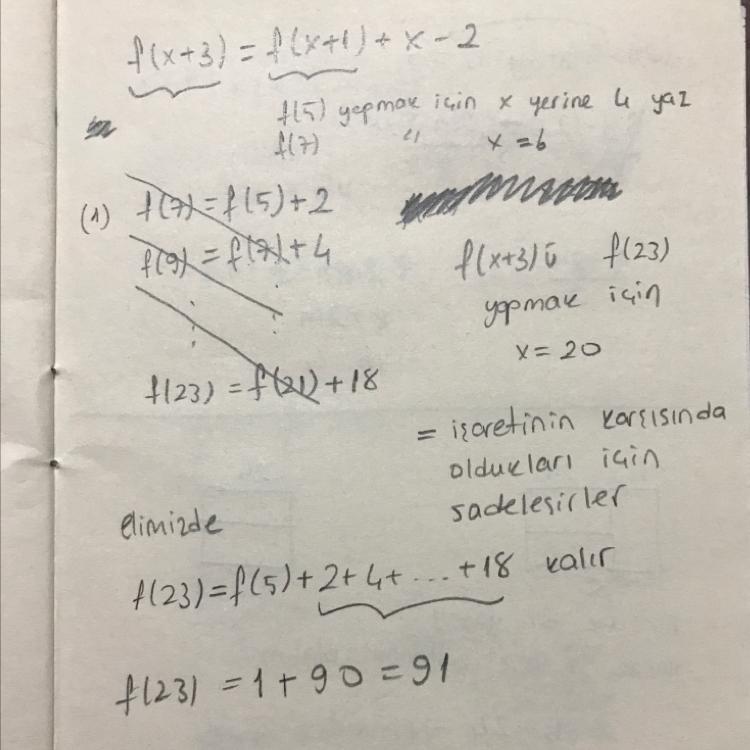 f(x+3) = f(x+1) + x - 2
f(5) yapmak için x yerine 4 yaz
f(7) " x = 6
(1) f(7) = f(5) + 2
f(9) = f(7) + 4
f(23) = f(21) + 18
f(x+3)ü f(23)
yapmak için
x = 20
= işaretinin karşısında
oldukları için
sadeleşirler
elimizde
f(23) = f(5) + 2 + 4 + ... + 18 kalır
f(23) = 1 + 90 = 91